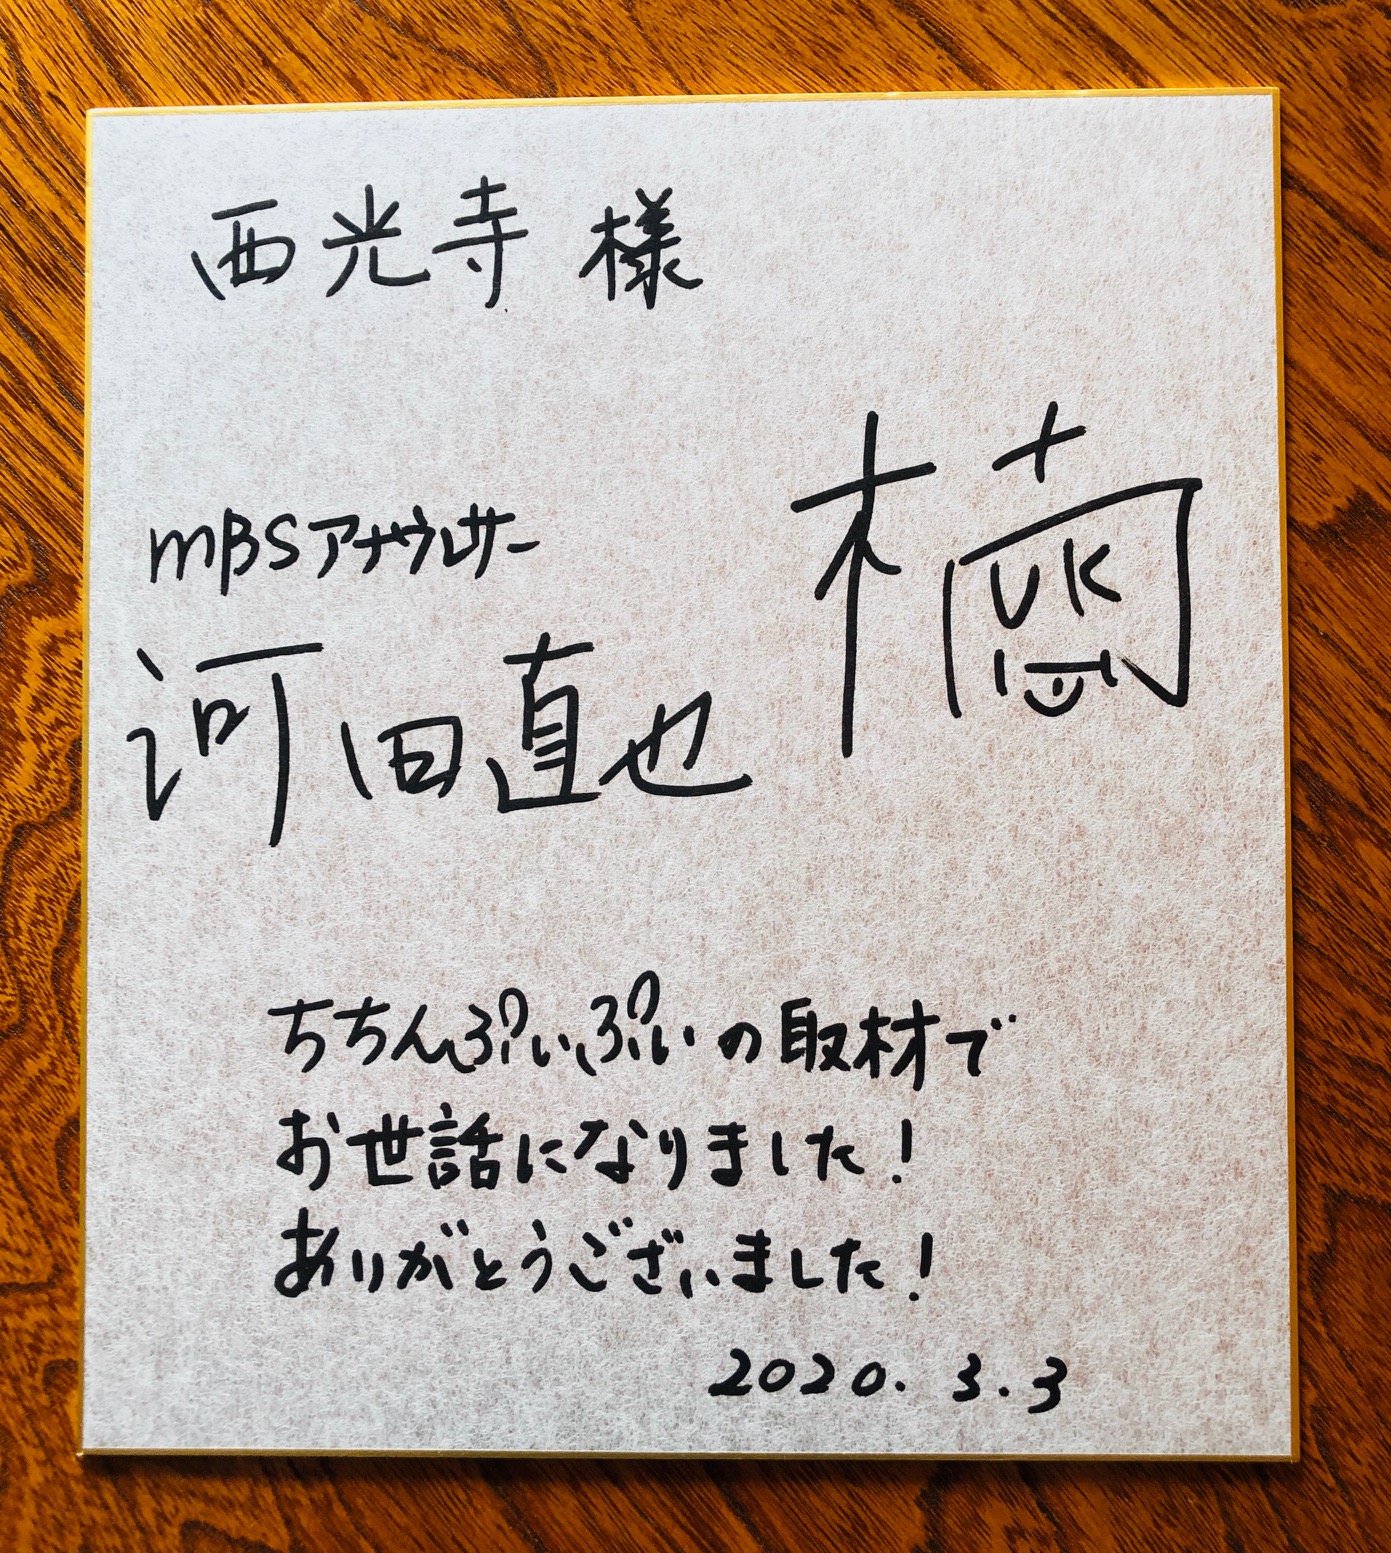 西光寺 様
楠
UK
MBSアナウンサー
河田直也
ちちんぷいぷいの取材で
お世話になりました!
ありがとうございました!
2020. 3. 3